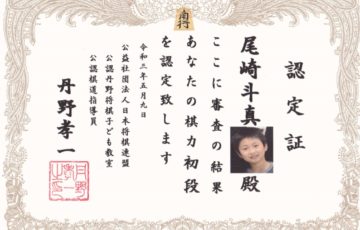 認定証
尾崎斗真殿
ここに審査の結果
あなたの棋力初段
を認定致します
令和三年五月九日
公益社団法人日本将棋連盟
公認丹野将棋子ども教室
公認棋道指導員
丹野孝一